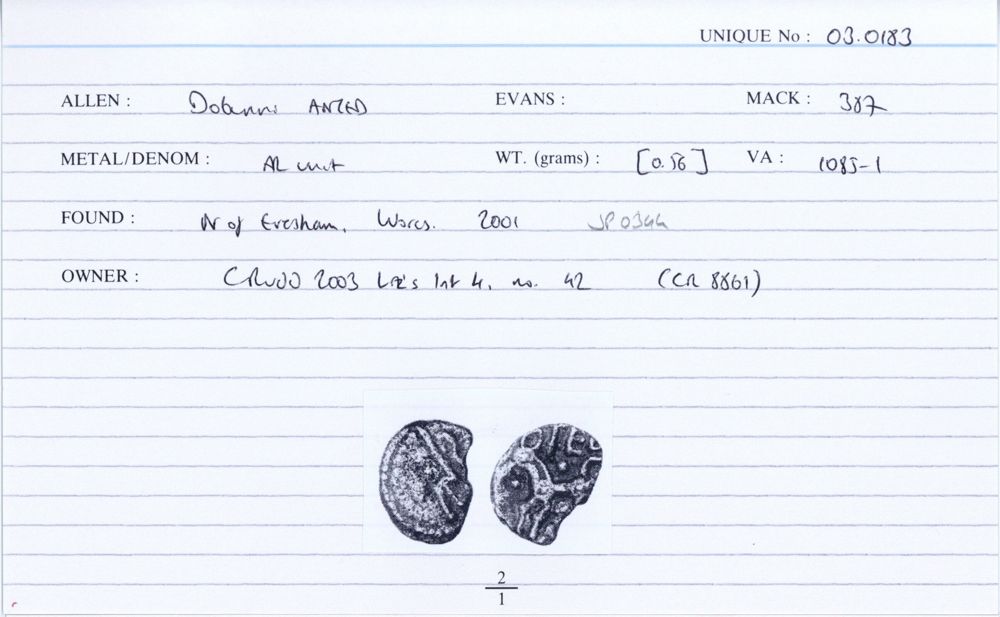 UNIQUE No : 03.0183
ALLEN : Dobunni ANTED EVANS : MACK : 387
METAL/DENOM : AR unit WT. (grams) : [0.56] VA : 1085-1
FOUND : N of Evesham, Worcs. 2001 JP0344
OWNER : CRudd 2003 List 4, no. 42 (CR 8861)
2
1